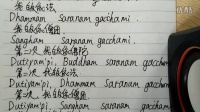 我皈依法
Dhammam saranam gacchami.
我皈依僧
Sangham saranam gacchami.
第二次 我皈依佛陀
Dutiyam'pi, Buddham saranam gacchami
第二次 我皈依法
Dutiyam'pi, Dhammam Saranam gacchami
第二次 我皈依僧
Dutiyam'pi, Sangham Saranam gaccham